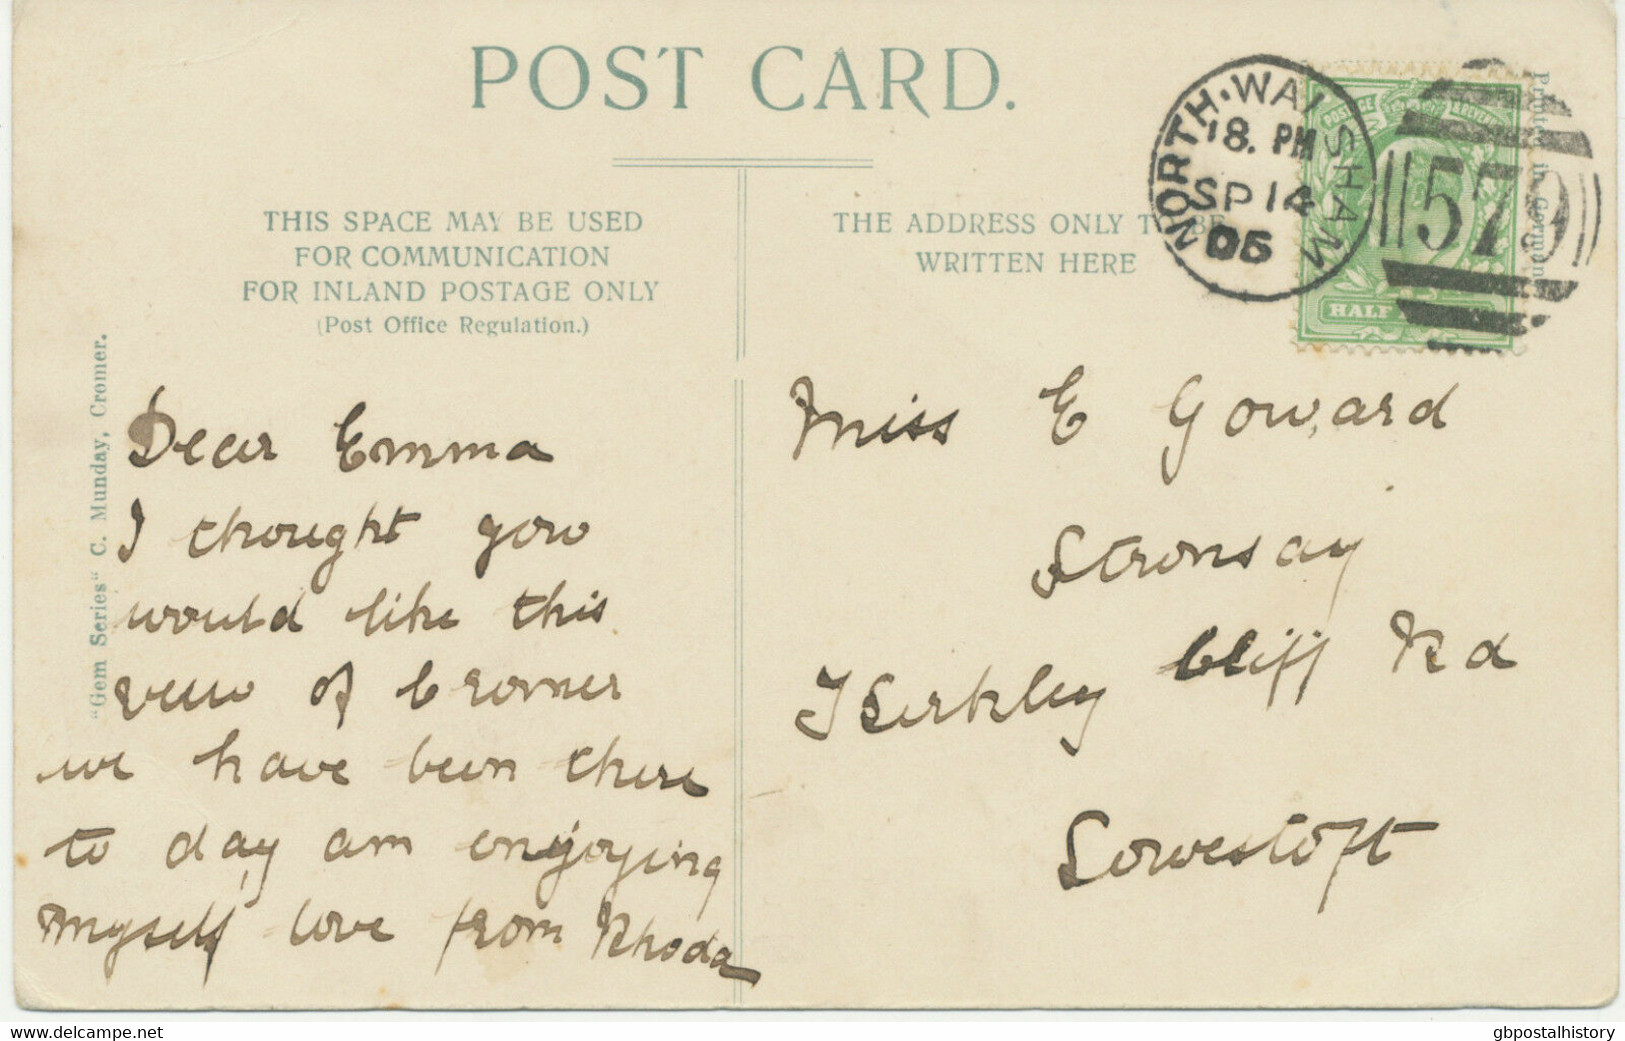 POST CARD.
THIS SPACE MAY BE USED
FOR COMMUNICATION
FOR INLAND POSTAGE ONLY
(Post Office Regulation.)
THE ADDRESS ONLY TO BE
WRITTEN HERE
NORTH·WALSHAM
18. PM
SP 14
05
579
POSTAGE & REVENUE
HALF
Printed in Germany
"Gem Series" C. Munday, Cromer.
Dear Emma
I thought you
would like this
view of Cromer
we have been there
to day am enjoying
myself love from Rhoda
Miss E Goward
Stronsay
Kirkley Cliff Rd
Lowestoft
www.delcampe.net
gbpostalhistory